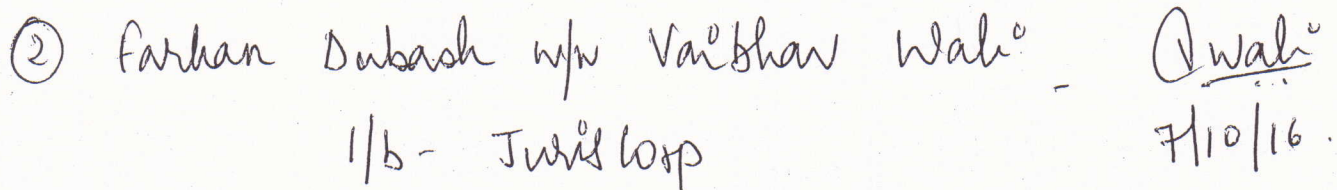 ② Farhan Dubash w/w Vaibhav Wali - Vwali
I/b - Juris Corp 7/10/16.